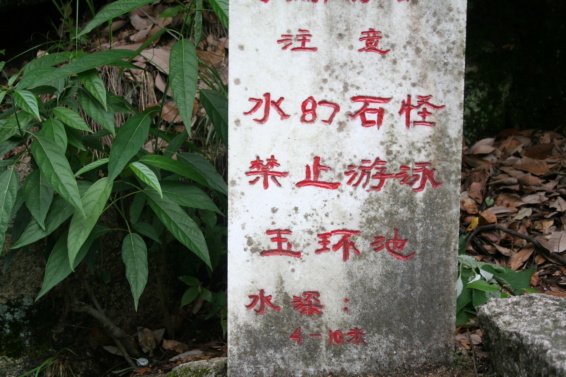 注意
水幻石怪
禁止游泳
玉环池
水深：
4-10米